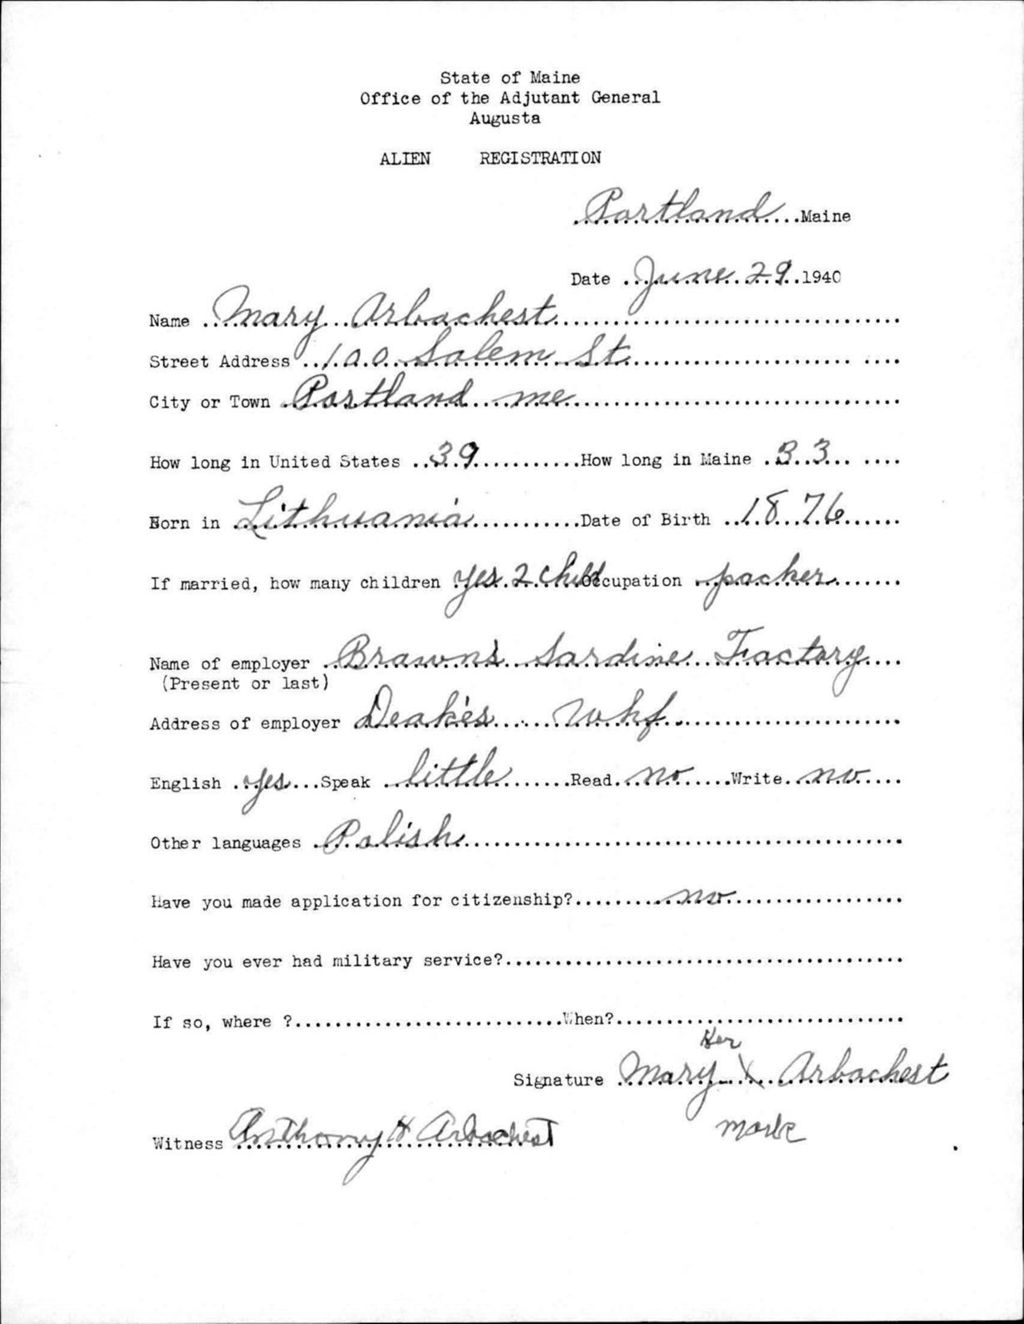 State of Maine
Office of the Adjutant General
Augusta
ALIEN REGISTRATION
Portland Maine
Date June 29 1940
Name Mary Arbachest
Street Address 100 Salem St.
City or Town Portland me
How long in United States 39 How long in Maine 33
Born in Lithuania Date of Birth 1876
If married, how many children yes 2 child Occupation packer
Name of employer Brawn's Sardine Factory
(Present or last)
Address of employer Deake's Whf.
English yes Speak little Read no Write no
Other languages Polish
Have you made application for citizenship? no
Have you ever had military service?
If so, where ? When?
Her
Signature Mary X Arbachest
mark
Witness Anthony H Arbachest